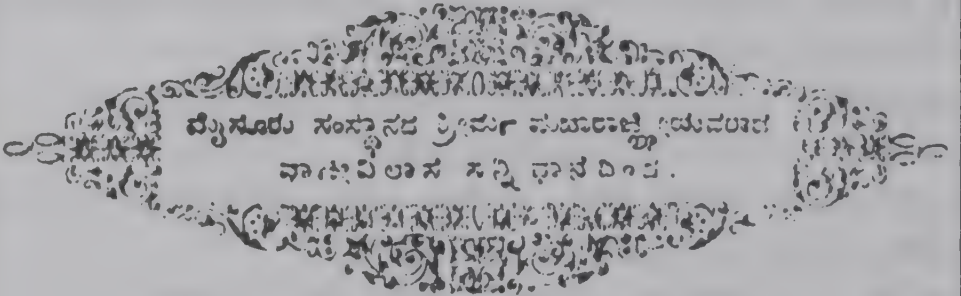 ಮೈಸೂರು ಸಂಸ್ಥಾನದ ಶ್ರೀಮನ್ ಮಹಾರಾಜ್ಞೀಯವರಾದ
ವಾಣೀವಿಲಾಸ ಸನ್ನಿಧಾನದಿಂದ.